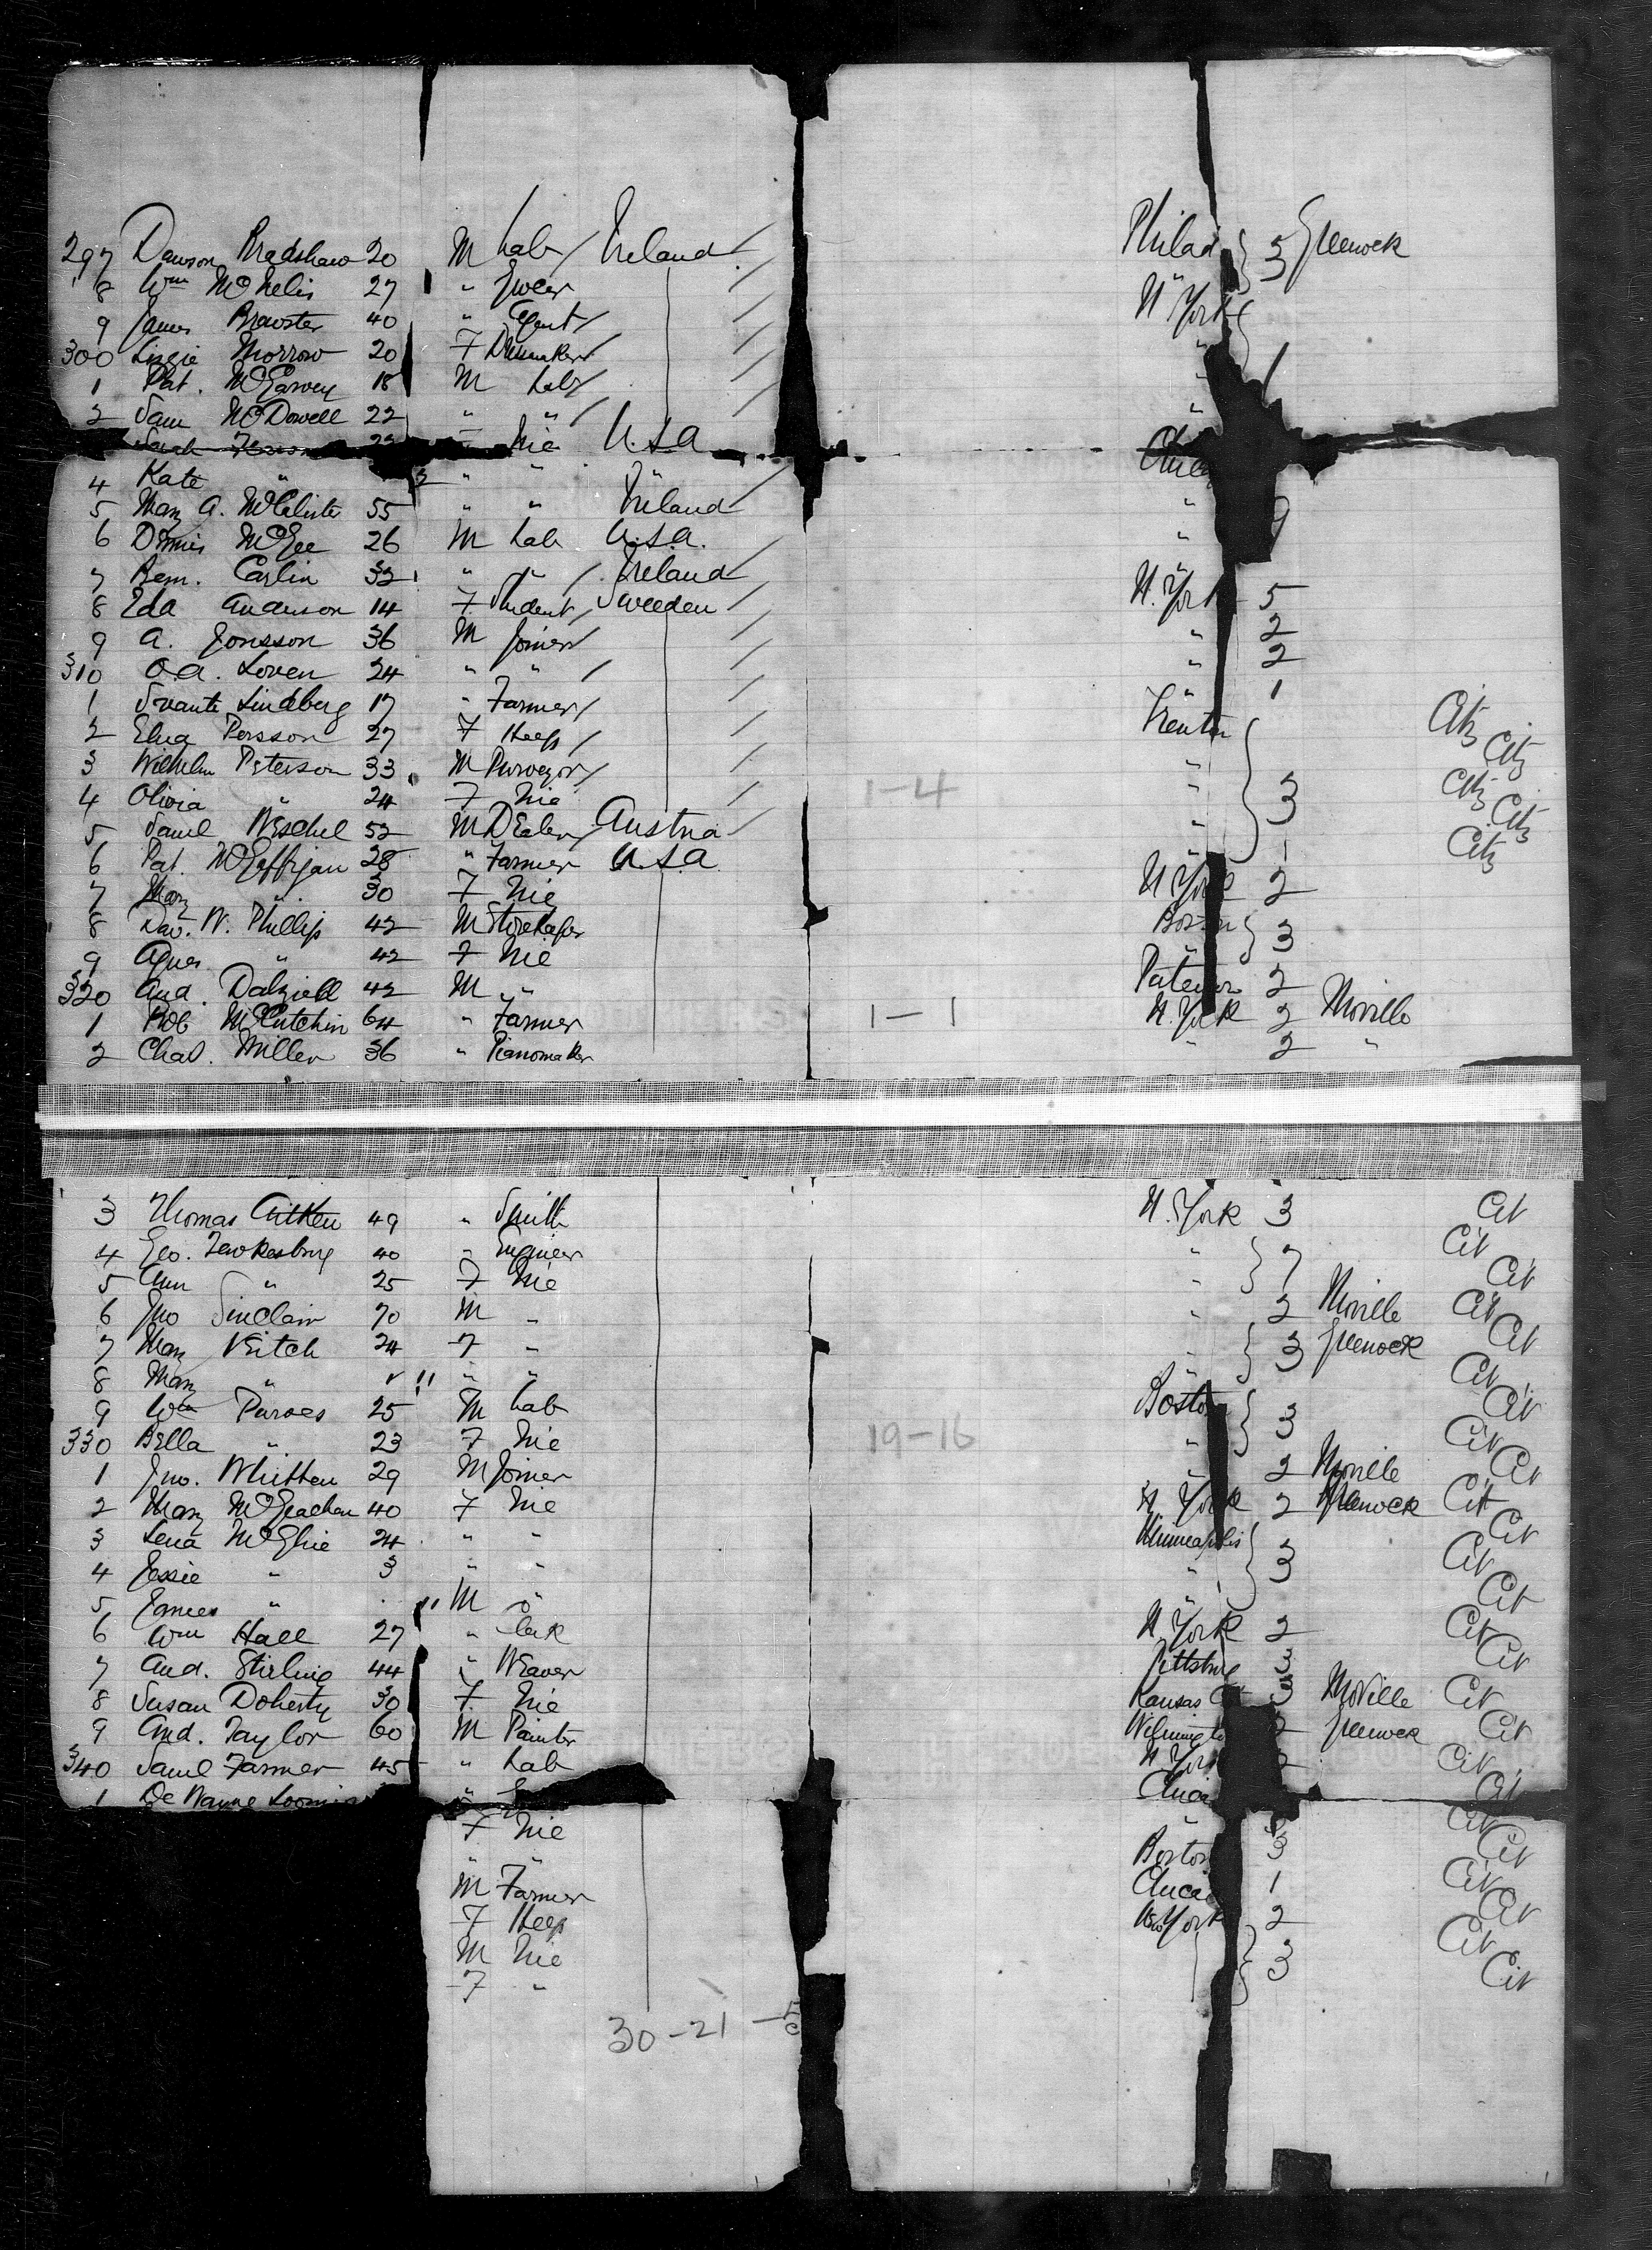 297 Dawson Bradshaw 20 M Lab Ireland Philad 3 Greenock
8 Wm McNelis 27 " Jweler N York
9 James Brewster 40 " Agent "
300 Lizzie Morrow 20 F Dressmaker " 1
1 Pat. McGarvey 18 M Lab "
2 Sam McDowell 22 " " "
Sarah 22 " Nie U.S.A
4 Kate " 3 " " "
5 Mary A. McAlister 55 " " Ireland " 9
6 Dennis McGee 26 M Lab U.S.A. "
7 Bern. Carlin 32 " " Ireland N. York 5
8 Eda Anderson 14 F Student Sweeden " 2
9 A. Jonsson 36 M Joiner " 2
310 O.A. Loven 24 " " 1
1 Svante Lindberg 17 " Farmer Trenton Citz
2 Elug Persson 27 F Keep " Citz
3 Wilhelm Peterson 33 M Purveyor " 3 Citz
4 Olivia " 24 F Nie " Citz
5 Saml Weschel 52 M Dealer Austria 1 Citz
6 Pat. McGeffigan 28 " Farmer U.S.A N York 2
7 Mary " 30 F Nie Boston
8 Dav. W. Phillip 42 M Storekeper " 3
9 Agnes " 42 F Nie Paterson 2
320 And. Dalziell 42 M " N. York 2 Moville
1 Rob McCutchin 64 " Farmer " 2 "
2 Chas. Miller 36 " Pianomaker
1-4
1-1
3 Thomas Aitken 49 " Smith N. York 3 Cit
4 Geo. Tewkesbury 40 " Engineer " 7 Cit
5 Ann " 25 F Nie " Cit
6 Jno Sinclair 70 M " " 2 Moville Cit
7 Mary Veitch 24 F " " 3 Greenock Cit
8 Mary " 11 " " Cit
9 Wm Purves 25 M Lab Boston 3 Cit
330 Bella " 23 F Nie " Cit
1 Jno. Whitten 29 M Joiner " 2 Moville Cit
2 Mary McGeachan 40 F Nie N York 2 Greenock Cit
3 Lena McGhie 24 " " Minneapolis 3 Cit
4 Jessie " 3 " " " Cit
5 James " 11 M " Cit
6 Wm Hall 27 " Clerk N. York 2 Cit
7 And. Stirling 44 " Weaver Pittsburg 3 Cit
8 Susan Doherty 30 F Nie Kansas Moville Cit
9 And. Taylor 60 M Painter Wilmington 2 Greenock Cit
340 Saml Farmer 45 " Lab N. York 2 Cit
1 De Wayne Loomis " Cit
F Nie Cit
" " Boston 3 Cit
M Farmer 1 Cit
F Keep New York 2 Cit
M Nie 3 Cit
F " Cit
19-16
30-21-5